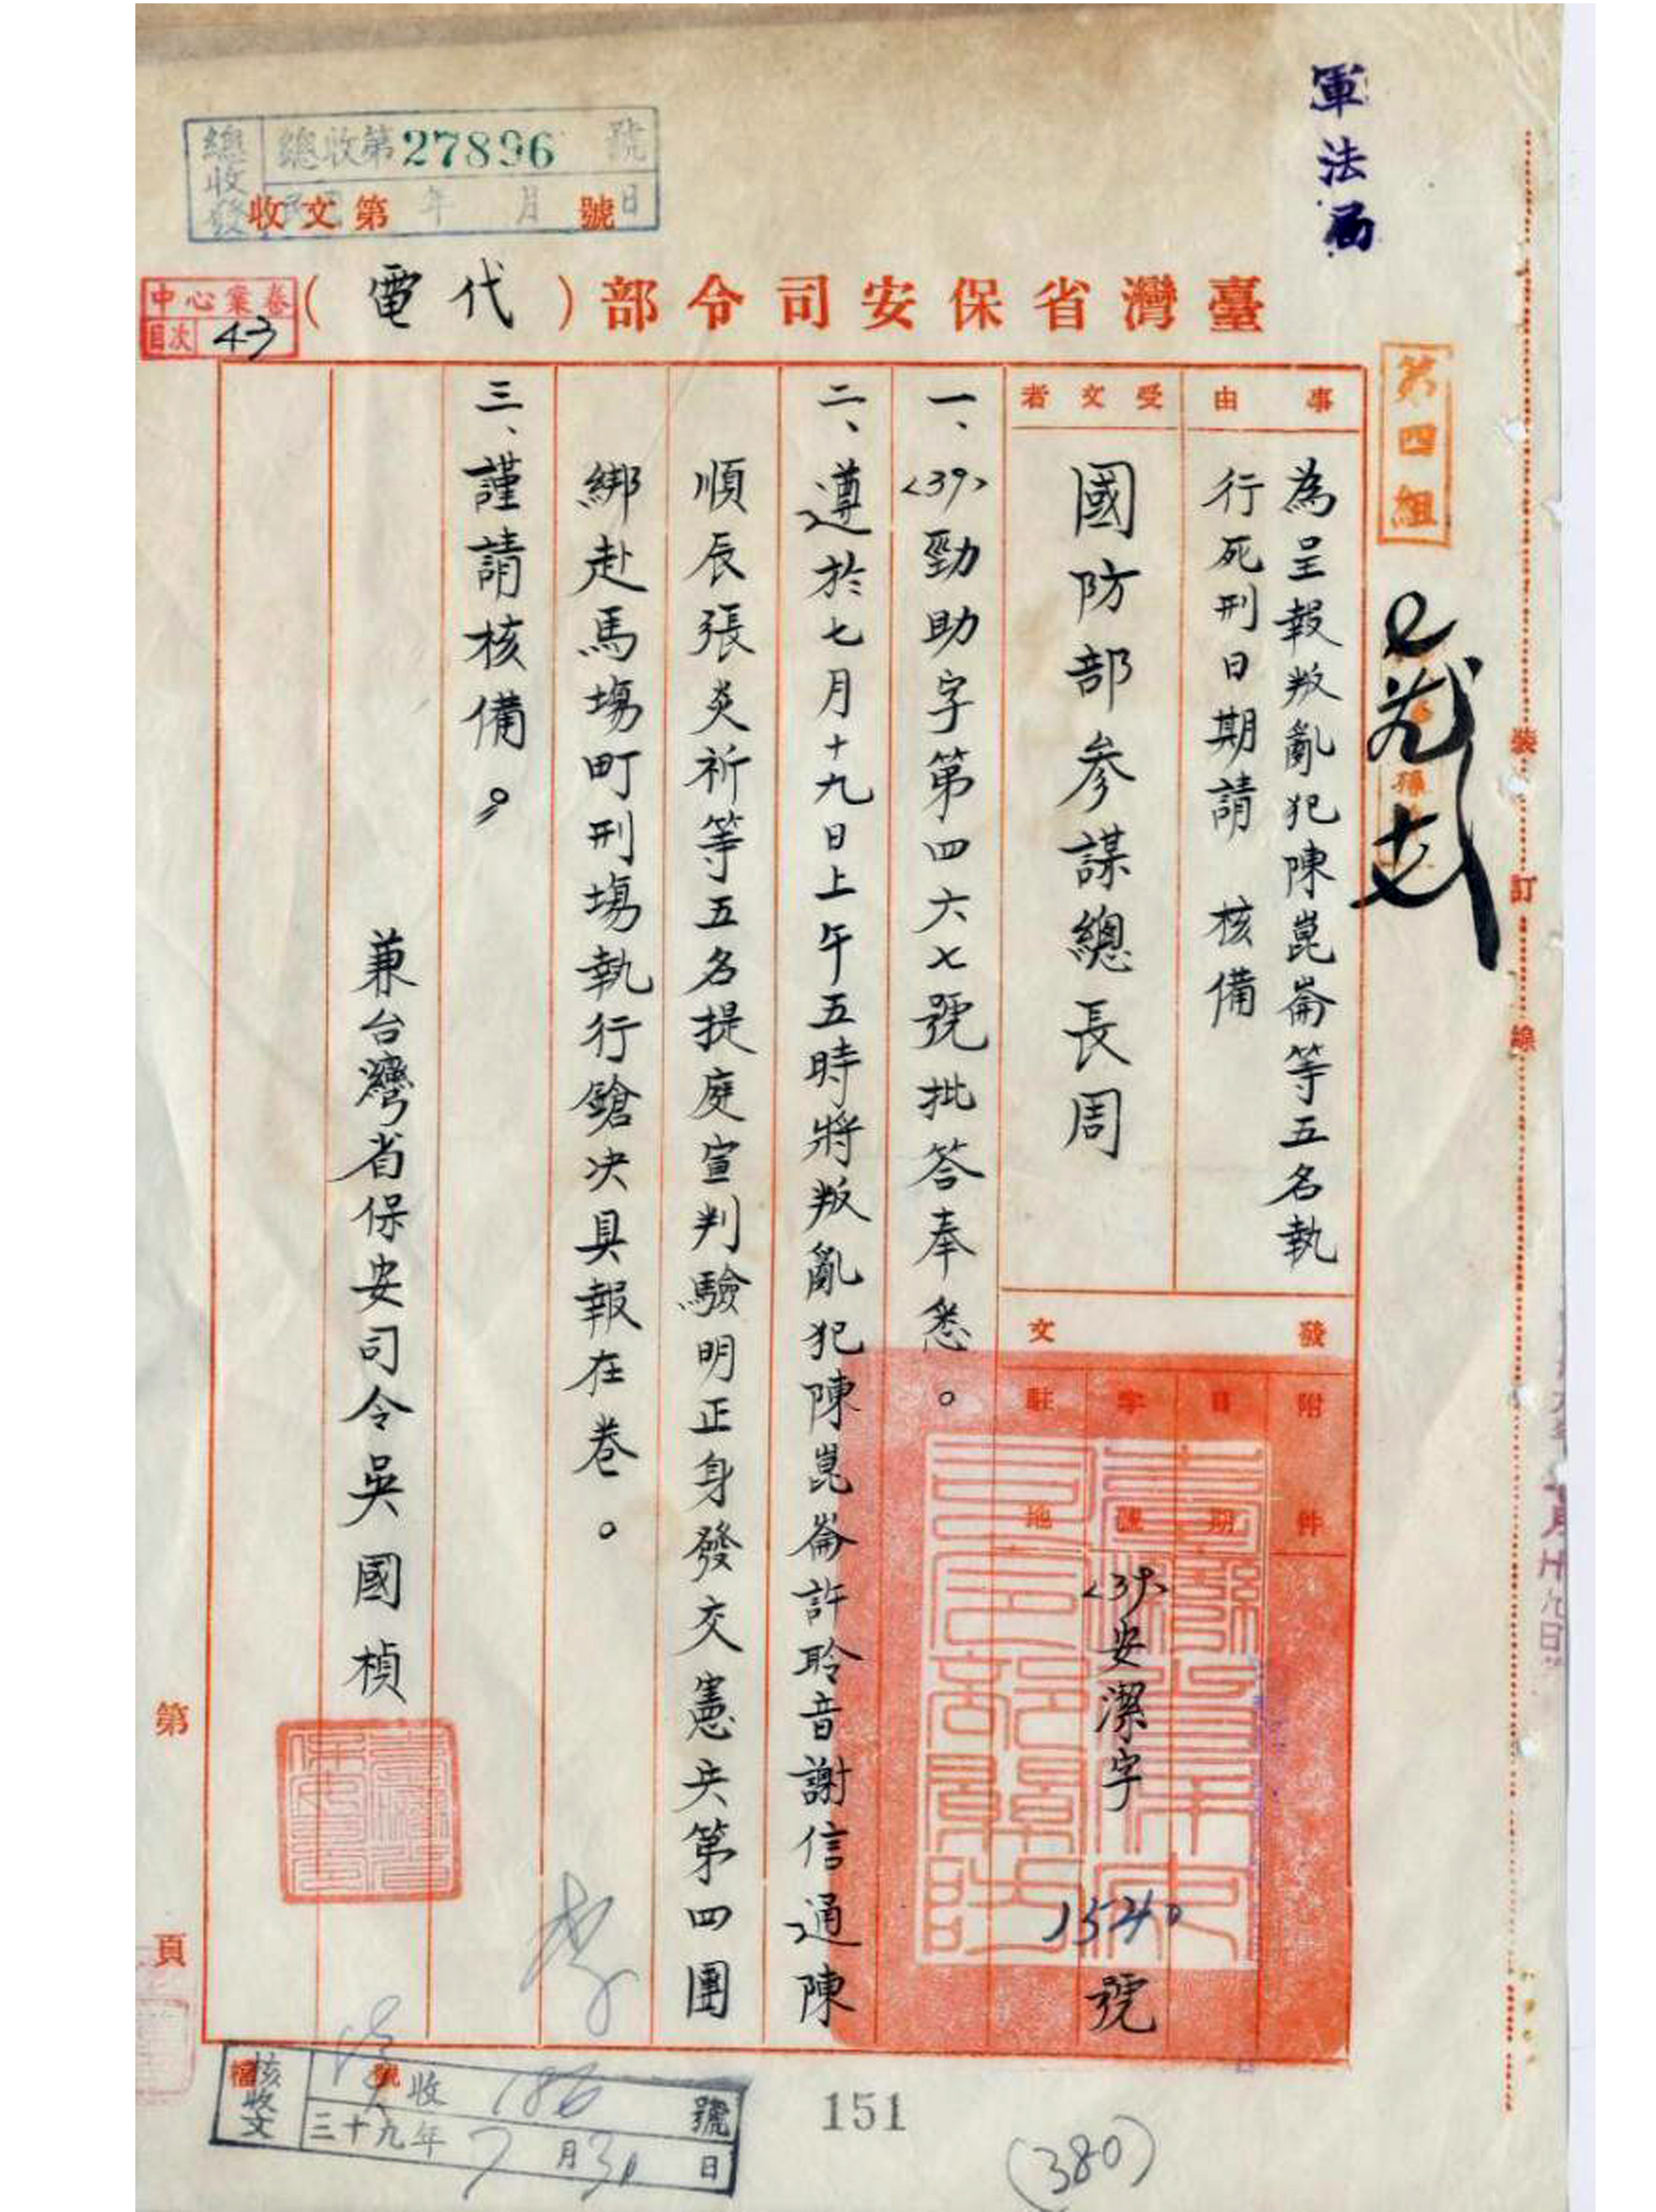 軍法局
總收發
總收第27896號
年 月 日
收文第 號
臺灣省保安司令部（代電）
中心案卷
目次 43
第四組
事由
為呈報叛亂犯陳崑崙等五名執
行死刑日期請 核備
受文者
國防部參謀總長周
發文
附件
日期
字號
<39>安潔字1540號
駐地
一、<39>勁助字第四六七號批答奉悉。
二、遵於七月十九日上午五時將叛亂犯陳崑崙許聆音謝信通陳
順辰張炎祈等五名提庭宣判驗明正身發交憲兵第四團
綁赴馬場町刑場執行鎗决具報在卷。
三、謹請核備。
兼台灣省保安司令吳國楨
裝 訂 線
第 頁
檔 號
核收文
收 186 號
三十九年 7月31日
151
(380)